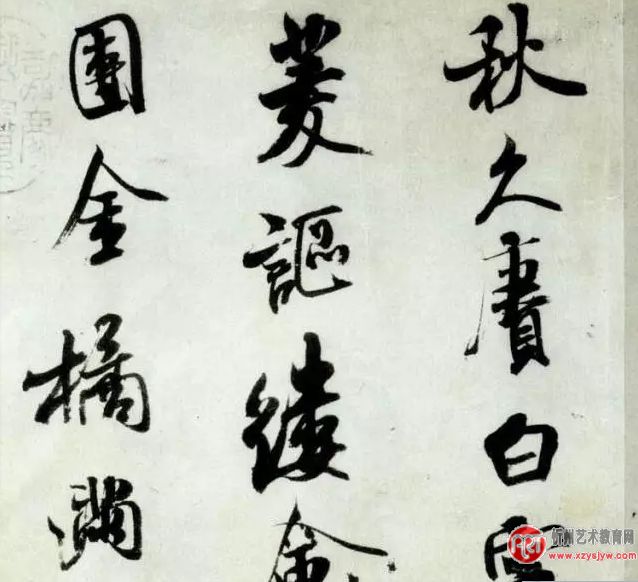 秋久賡白
菱謳縷
團金橘滿
忻州艺术教育网
www.xzysjyw.com